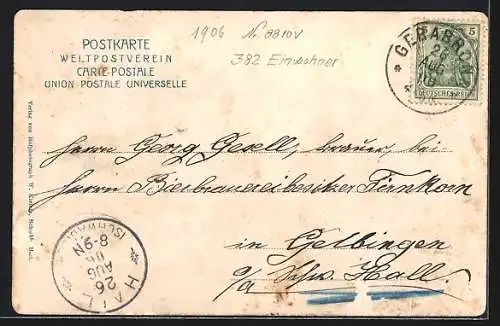 1906 N. 0310V
382 Einwohner
POSTKARTE
WELTPOSTVEREIN
CARTE POSTALE
UNION POSTALE UNIVERSELLE
5
DEUTSCHES REICH
GERABRONN
AUG
Herrn Georg Gesell, brauer, bei
Herrn Bierbrauereibesitzer Fürnkorn
in Gelbingen
o/a Schw. Hall.
HALL
26
AUG
06
8-9N
Verlag von Hofphotograph